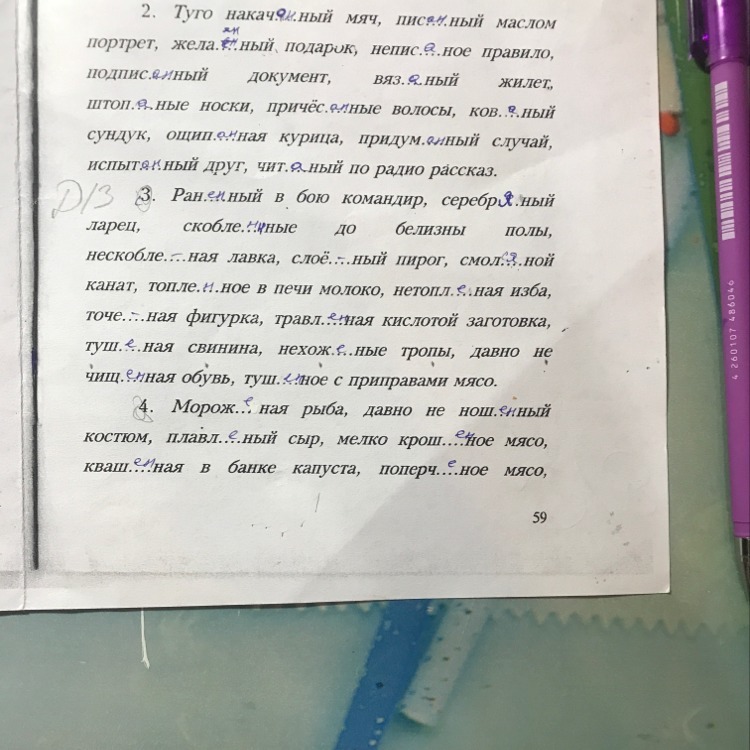 2. Туго накач.ан.ный мяч, пис.ан.ный маслом
портрет, жела.ан.ный подарок, непис.а.ное правило,
подпис.ан.ный документ, вяз.а.ный жилет,
штоп.а.ные носки, причёс.ан.ные волосы, ков.а.ный
сундук, ощип.ан.ная курица, придум.ан.ный случай,
испыт.ан.ный друг, чит.а.ный по радио рассказ.
Д/З 3. Ран.ен.ный в бою командир, серебр.я.ный
ларец, скобле.нн.ые до белизны полы,
нескобле....ная лавка, слоё....ный пирог, смол.я.ной
канат, топле.н.ное в печи молоко, нетопл.е.ная изба,
точе....ная фигурка, травл.ен.ная кислотой заготовка,
туш.е.ная свинина, нехож.е.ные тропы, давно не
чищ.ен.ная обувь, туш.ен.ное с приправами мясо.
4. Морож.е.ная рыба, давно не нош.ен.ный
костюм, плавл.е.ный сыр, мелко крош.ен.ное мясо,
кваш.ен.ная в банке капуста, поперч.е.ное мясо,
59
4 260107 486046